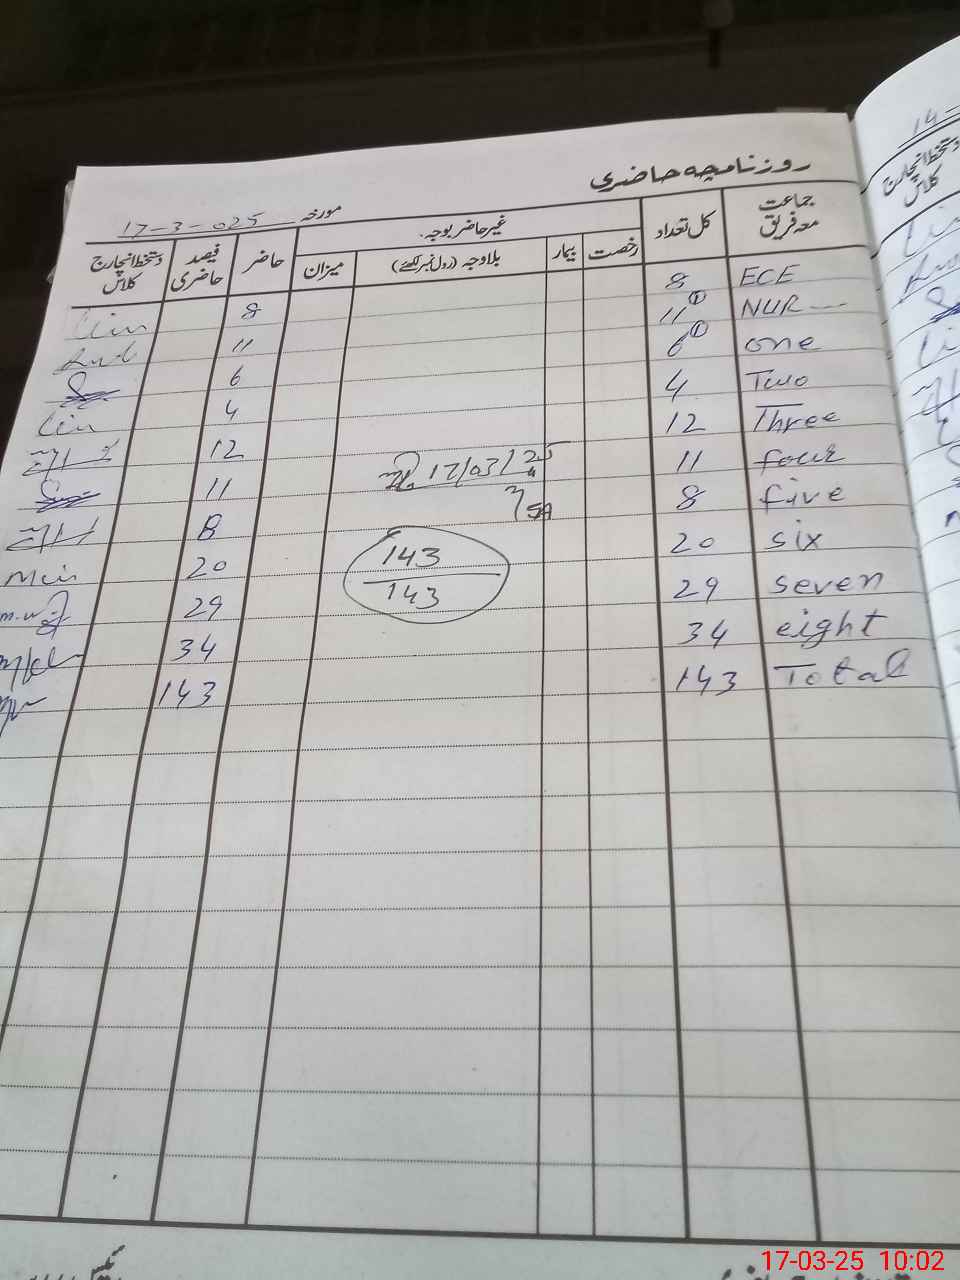 روزنامچہ حاضری
مورخہ 17-3-025
جماعت معہ فریق کل تعداد غیر حاضر بوجہ۔ حاضر فیصد حاضری دستخط انچارج کلاس
رخصت بیمار بلاوجہ (رول نمبر لکھئے) میزان
ECE 8 8
NUR 11 ① 11
one 6 ① 6
Two 4 4
Three 12 12
four 11 11
five 8 8
six 20 20
seven 29 29
eight 34 34
Total 143 143
17/03/25
143
143
14
دستخط انچارج کلاس
17-03-25 10:02